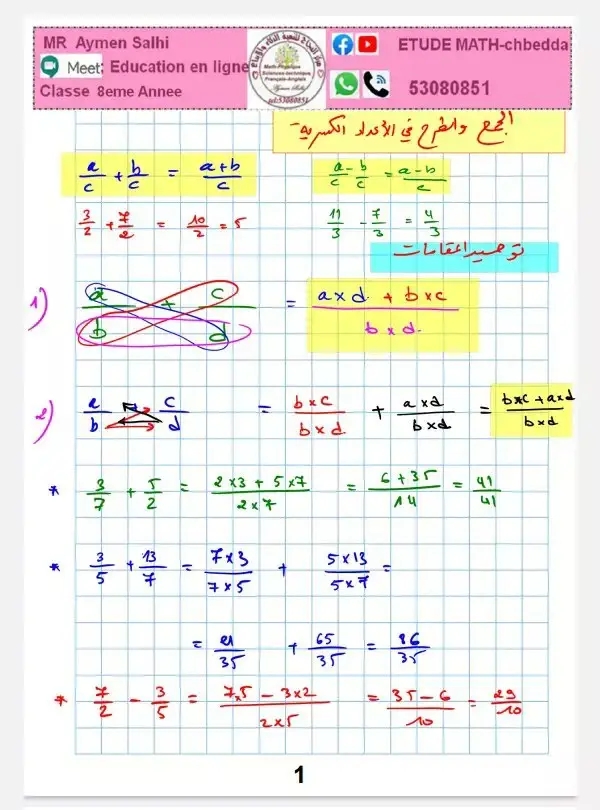 MR Aymen Salhi
Meet; Education en ligne
Classe 8eme Annee
ETUDE MATH-chbedda
53080851
الجمع والطرح في الأعداد الكسرية
a/c + b/c = a+b/c
a/c - b/c = a-b/c
3/2 + 7/2 = 10/2 = 5
11/3 - 7/3 = 4/3
توحيد المقامات
1) a/b + c/d = a×d + b×c / b×d
2) a/b c/d = b×c/b×d + a×d/b×d = b×c + a×d / b×d
* 3/7 + 5/2 = 2×3 + 5×7 / 2×7 = 6+35/14 = 41/41
* 3/5 + 13/7 = 7×3/7×5 + 5×13/5×7 =
= 21/35 + 65/35 = 86/35
* 7/2 - 3/5 = 7×5 - 3×2 / 2×5 = 35-6/10 = 29/10
1